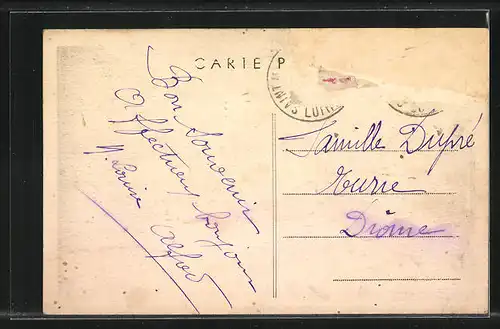 CARTE P
SAINT
Bon Souvenir
Affectueux bonjour
M. Louise Alfred
Famille Dupré
Eurre
Drôme